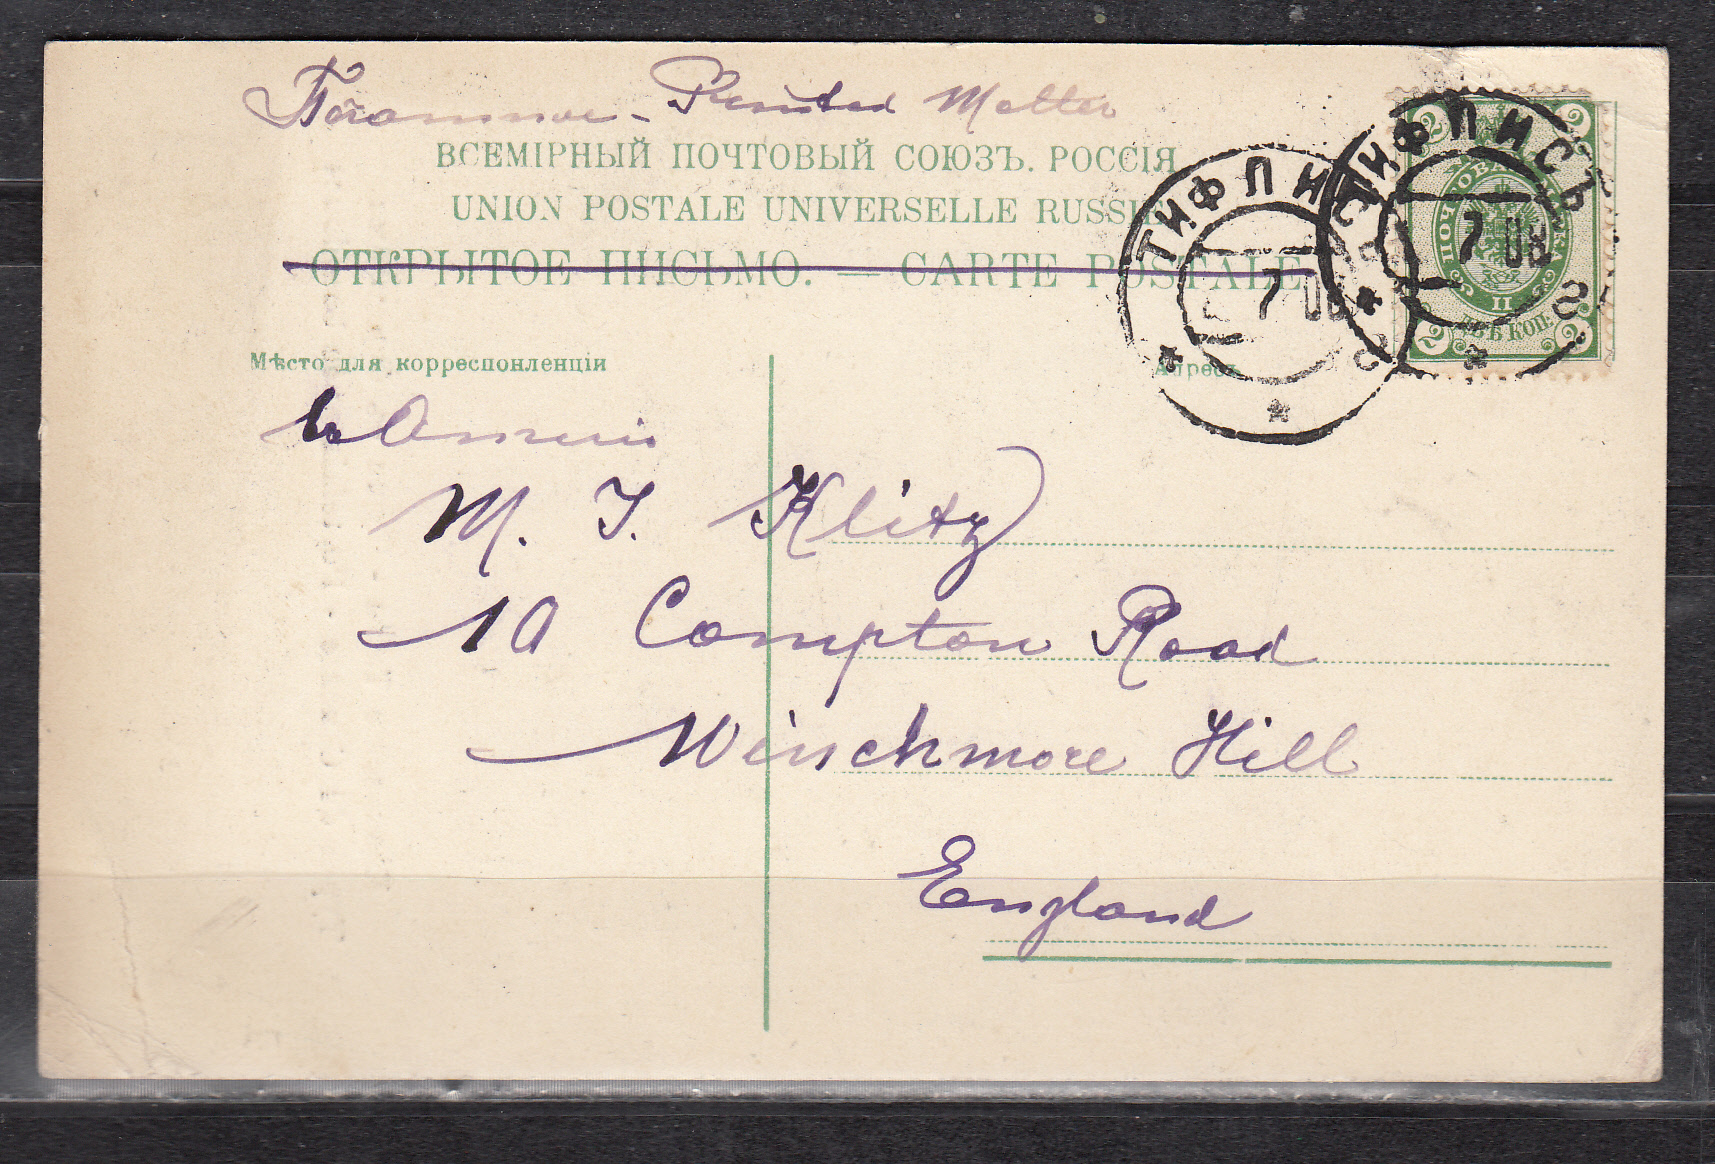 Печатное - Printed Matter
ВСЕМІРНЫЙ ПОЧТОВЫЙ СОЮЗЪ. РОССІЯ
UNION POSTALE UNIVERSELLE RUSSIE
ОТКРЫТОЕ ПИСЬМО. — CARTE POSTALE
ТИФЛИСЪ
7 08
ТИФЛИСЪ
7 08
2 2
ПОЧТОВАЯ МАРКА
II
2 ДВѢ КОП. 2
Мѣсто для корреспонленціи
Адресъ
M. J. Klitz
10 Compton Road
Winchmore Hill
England